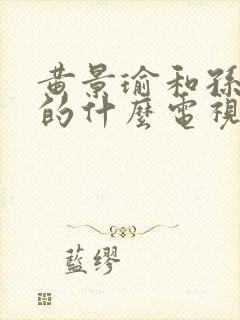 黄景瑜和孫
的什麼電視
藍缪